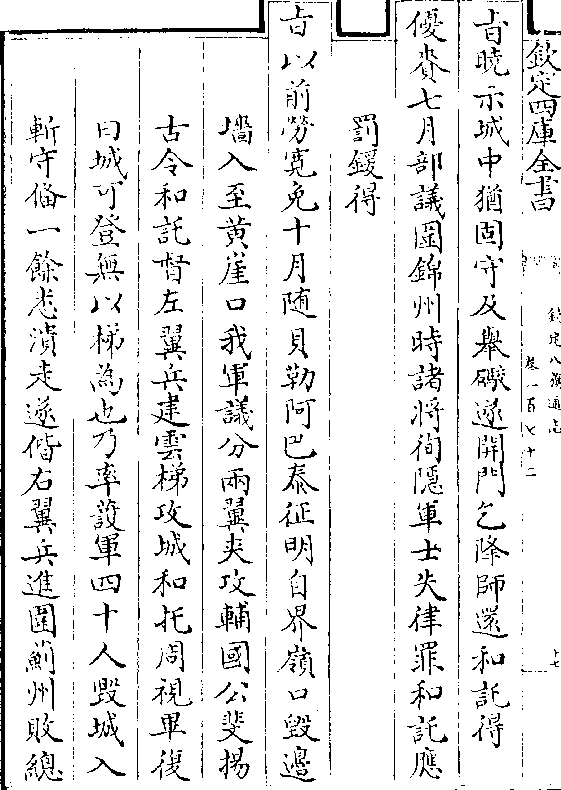 欽定四庫全書
欽定八旗通志
卷一百七十二
十七
旨曉示城中猶固守及舉礮遂開門乞降師還和託得
優賚七月部議圍錦州時諸將徇隱軍士失律罪和託應
罰鍰得
旨以前勞寛免十月随貝勒阿巴泰征明自界嶺口毀邊
墻入至黄崖口我軍議分兩翼夹攻輔國公斐揚
古令和託督左翼兵建雲梯攻城和托周視畢復
曰城可登無以梯為也乃率護軍四十人毀城入
斬守備一餘悉潰走遂偕右翼兵進圍薊州敗總